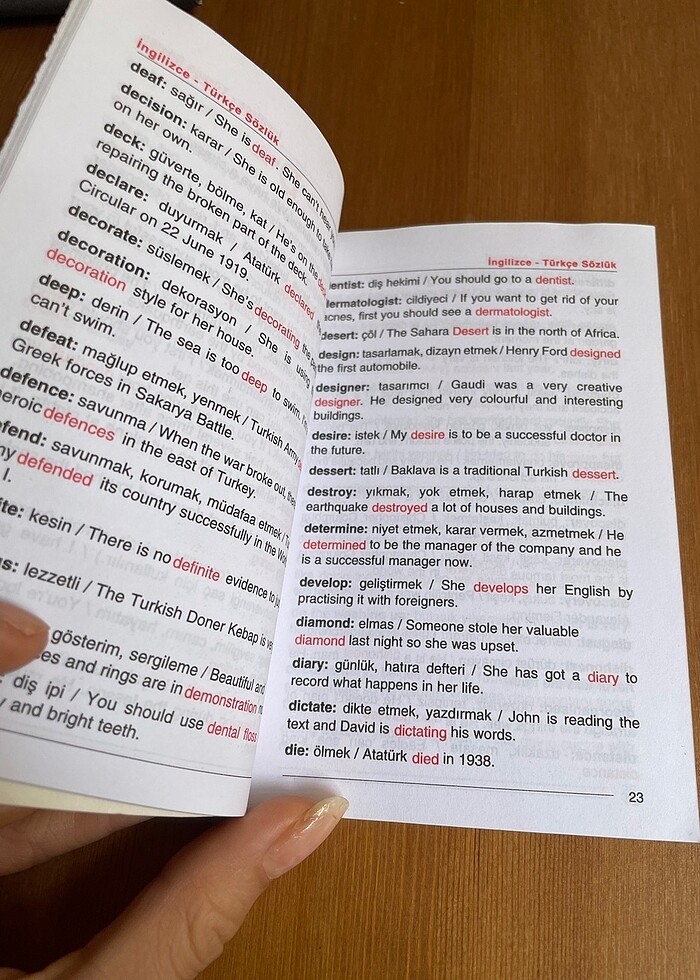 İngilizce - Türkçe Sözlük
deaf: sağır / She is deaf. She can't hear
decision: karar / She is old enough to
on her own.
deck: güverte, bölme, kat / He's on the
repairing the broken part of the deck.
declare: duyurmak / Atatürk declared
Circular on 22 June 1919.
decorate: süslemek / She's decorating the
decoration: dekorasyon / She is using
decoration style for her house.
deep: derin / The sea is too deep to swim.
can't swim.
defeat: mağlup etmek, yenmek / Turkish Army
Greek forces in Sakarya Battle.
defence: savunma / When the war broke out,
heroic defences in the east of Turkey.
fend: savunmak, korumak, müdafaa etmek /
defended its country successfully in the
I.
ite: kesin / There is no definite evidence to
us: lezzetli / The Turkish Doner Kebap is
gösterim, sergileme / Beautiful and
es and rings are in demonstration
: diş ipi / You should use dental floss
and bright teeth.
İngilizce - Türkçe Sözlük
entist: diş hekimi / You should go to a dentist.
dermatologist: cildiyeci / If you want to get rid of your
acnes, first you should see a dermatologist.
desert: çöl / The Sahara Desert is in the north of Africa.
design: tasarlamak, dizayn etmek / Henry Ford designed
the first automobile.
designer: tasarımcı / Gaudi was a very creative
designer. He designed very colourful and interesting
buildings.
desire: istek / My desire is to be a successful doctor in
the future.
dessert: tatlı / Baklava is a traditional Turkish dessert.
destroy: yıkmak, yok etmek, harap etmek / The
earthquake destroyed a lot of houses and buildings.
determine: niyet etmek, karar vermek, azmetmek / He
determined to be the manager of the company and he
is a successful manager now.
develop: geliştirmek / She develops her English by
practising it with foreigners.
diamond: elmas / Someone stole her valuable
diamond last night so she was upset.
diary: günlük, hatıra defteri / She has got a diary to
record what happens in her life.
dictate: dikte etmek, yazdırmak / John is reading the
text and David is dictating his words.
die: ölmek / Atatürk died in 1938.
23